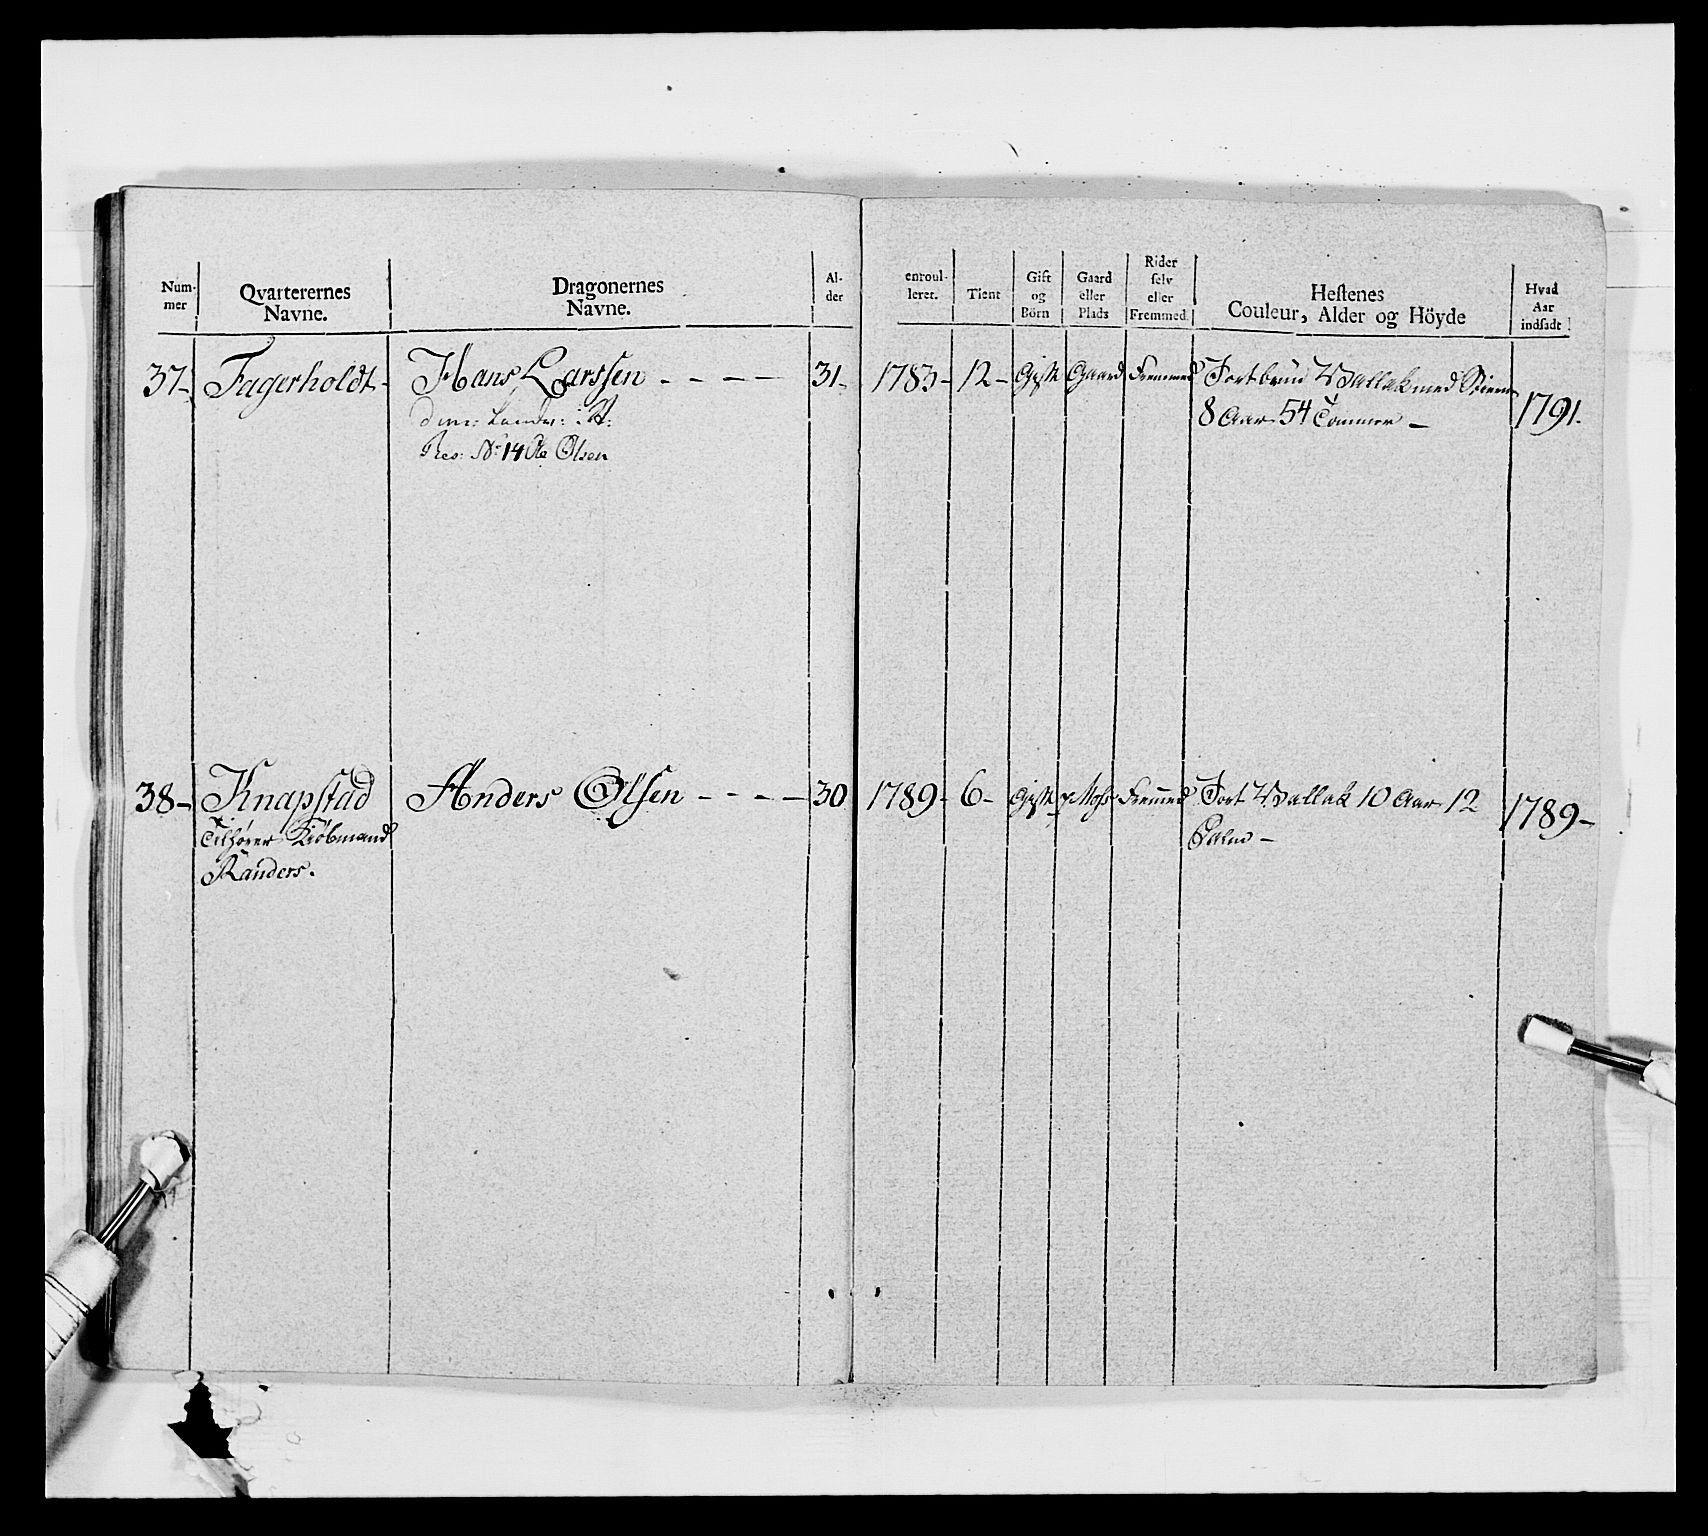 Num-
mer
Qvarterernes
Navne.
Dragonernes
Navne.
Al-
der
enroul-
leret.
Tient
Gift
og
Börn
Gaard
eller
Plads
Rider
selv
eller
Fremmed.
Hestenes
Couleur, Alder og Höyde
Hvad
Aar
indsadt
37- Fagerholdt- Hans Larssen - - - - 31- 1783- 12- Gift Gaard Fremmed Sort brun Wallak med Stierne
8 Aar 54 Tommer - 1791.
Res: No 14 Ole Olsen
38- Knapstad Anders Olsen - - - - 30 1789- 6- Gift Fremmed Sort Wallak 10 Aar 12
Tilhører Kiöbmand Palm - 1789-
Randers.